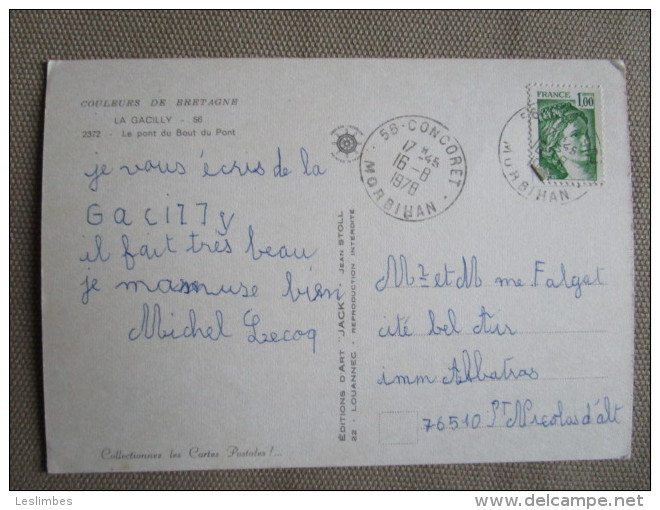 COULEURS DE BRETAGNE
LA GACILLY - 56
2372 - Le pont du Bout du Pont
je vous écris de la
Gacilly
il fait très beau
je mamuse bien
Michel Lecoq
Collectionnez les Cartes Postales !...
ÉDITIONS D'ART "JACK" JEAN STOLL
22 - LOUANNEC - REPRODUCTION INTERDITE
56-CONCORET
17 H 45
16-8
1978
MORBIHAN
FRANCE 1,00
MORBIHAN
Mr et Mme Falgat
cité bel Air
imm Albatros
76510 St Nicolas d'alt
Leslimbes
www.delcampe.net